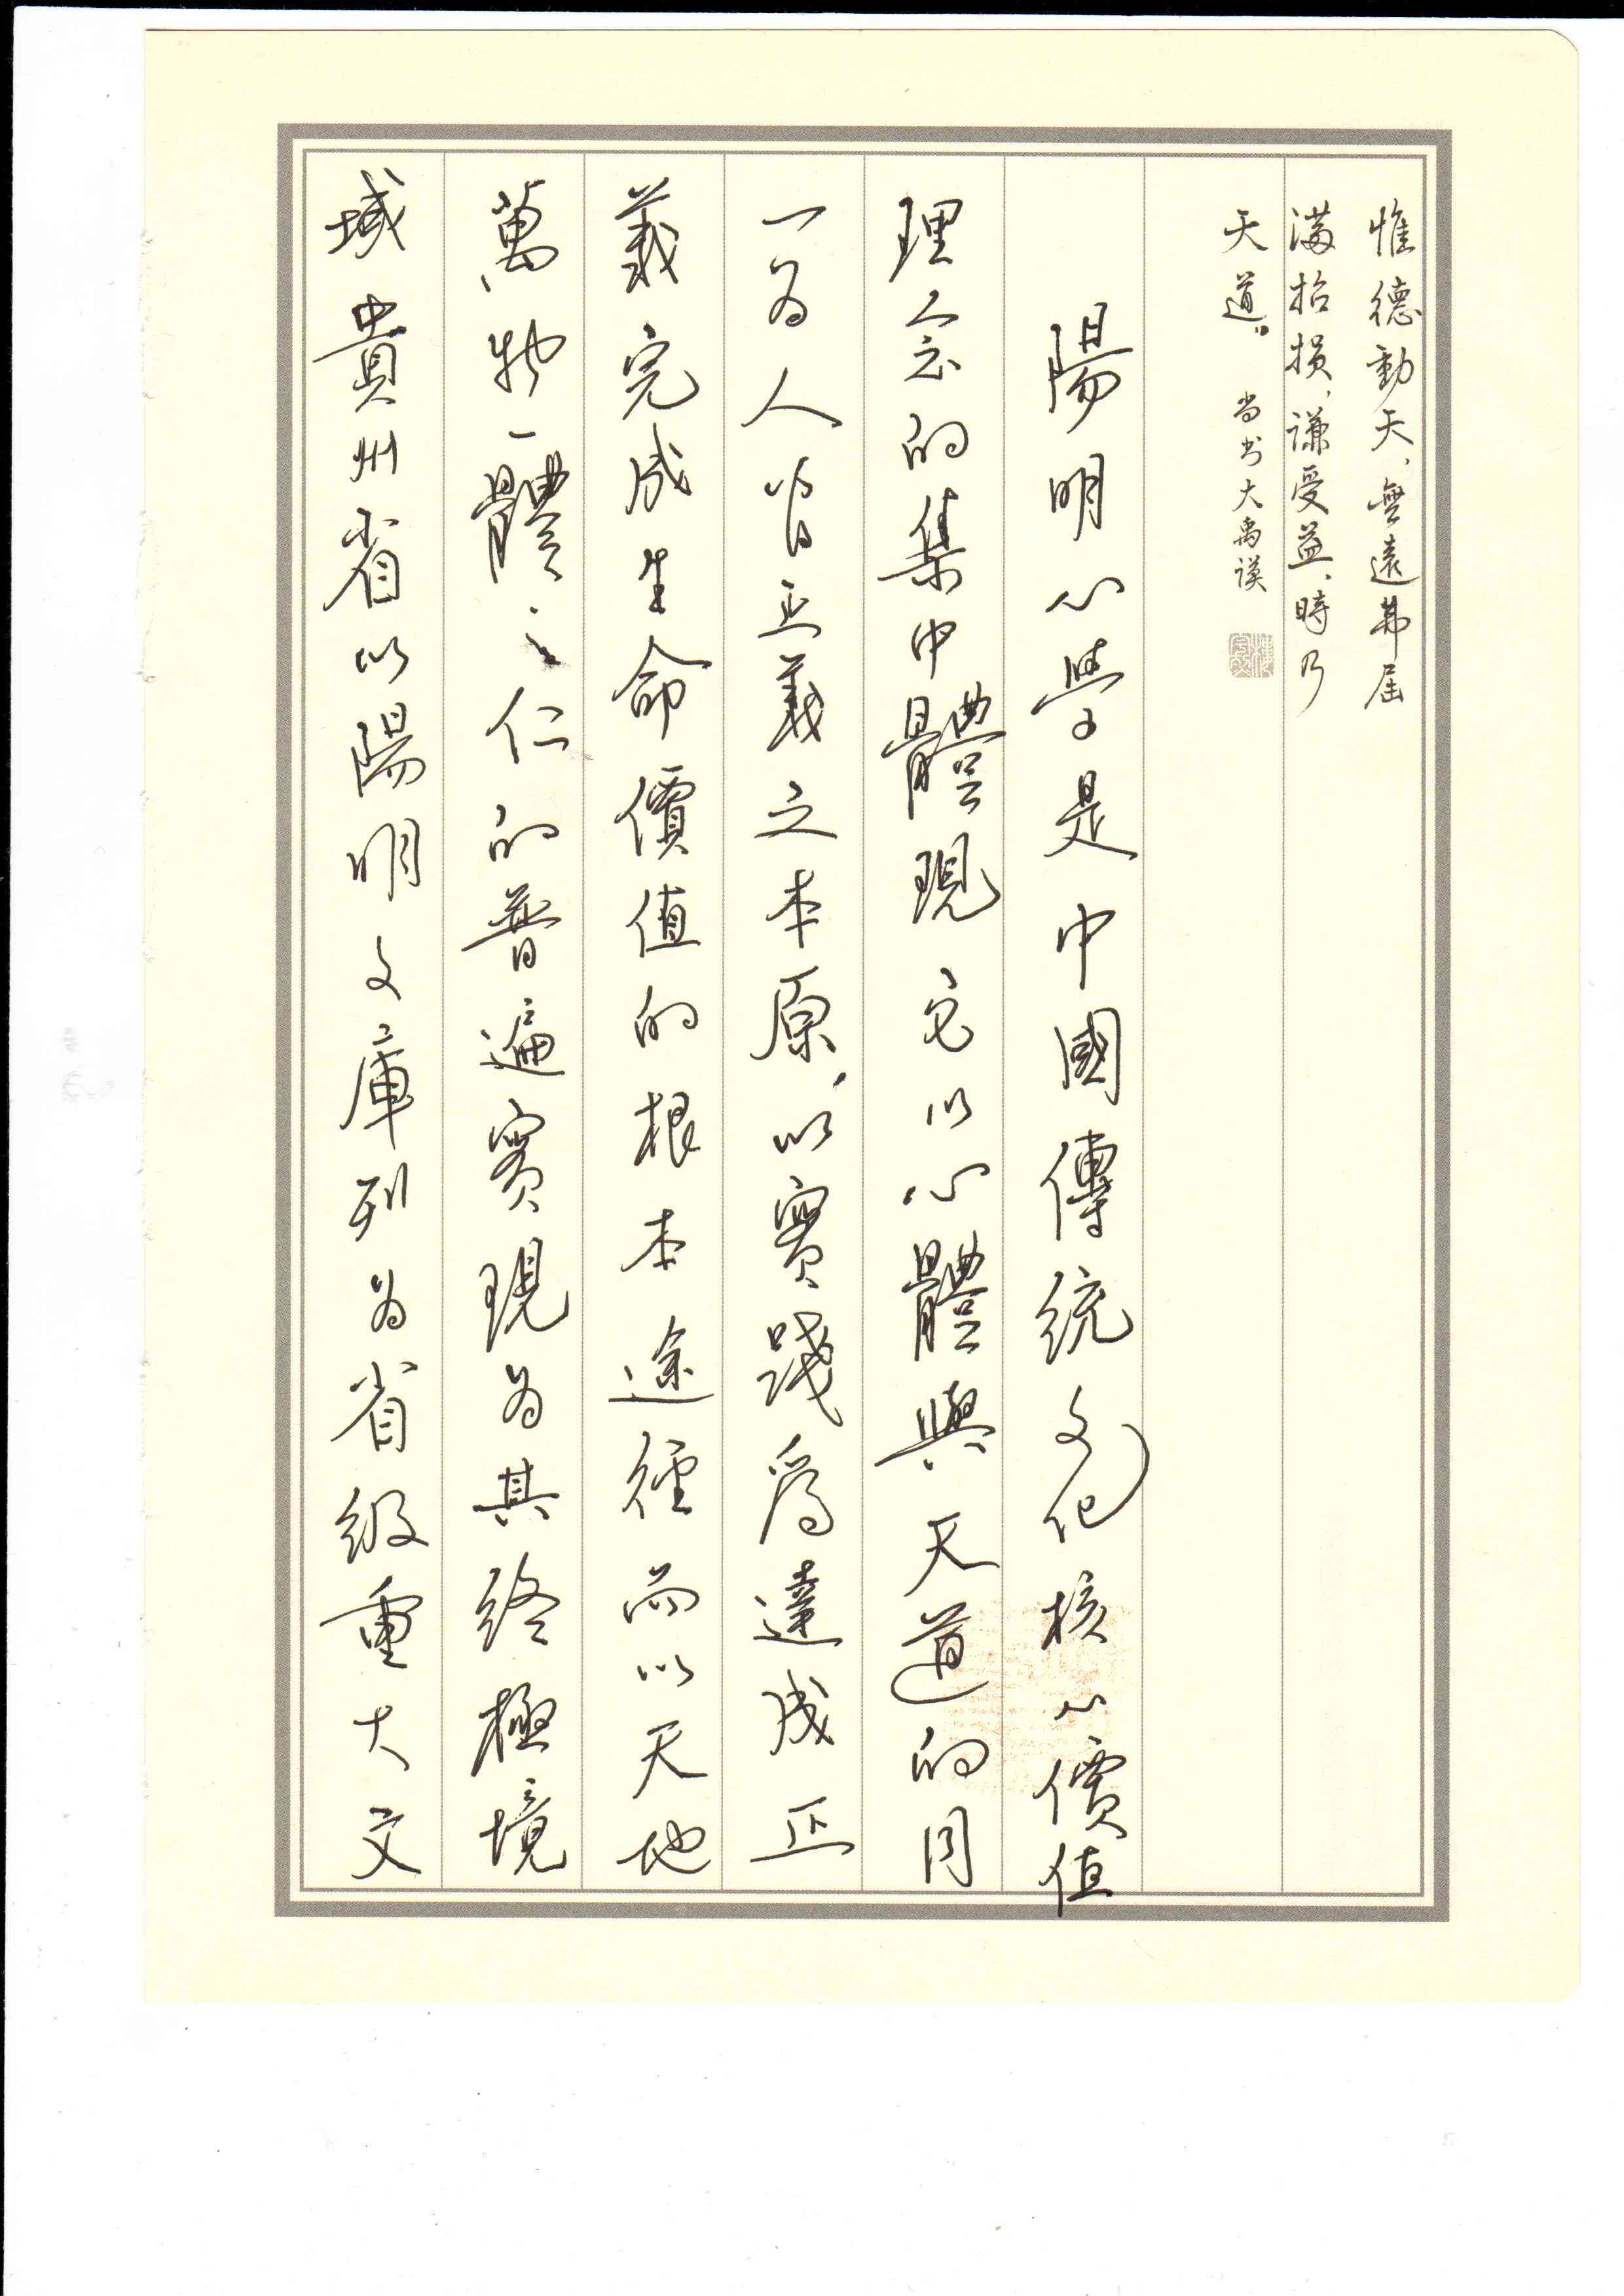 惟德動天，無遠弗届
满招損，谦受益，時乃
天道。 尚书大禹谟
陽明心學是中國傳统文化核心價值
理念的集中體現它以心體與天道的同
一为人皆正義之本原，以實踐爲達成正
義完成生命價值的根本途徑而以天地
萬物一體之仁的普遍實現为其終極境
域貴州省以陽明文庫列为省级重大文